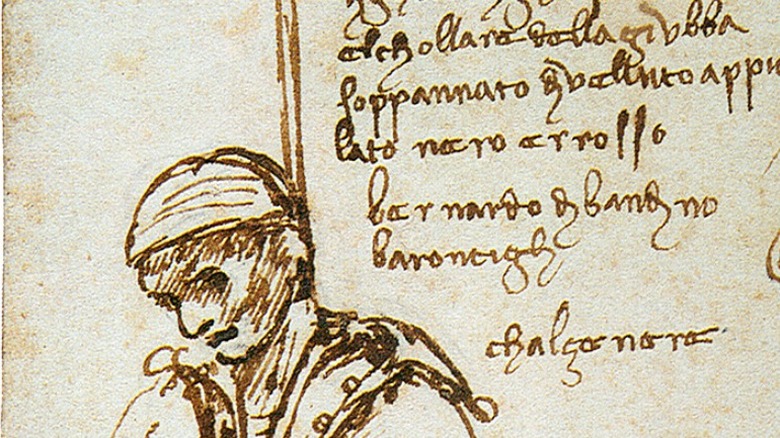 elchollare dellagiubba
soppannato dj velluto appu
lato nero errosso
bernardo dj bandjno
baroncigli
chalze nere